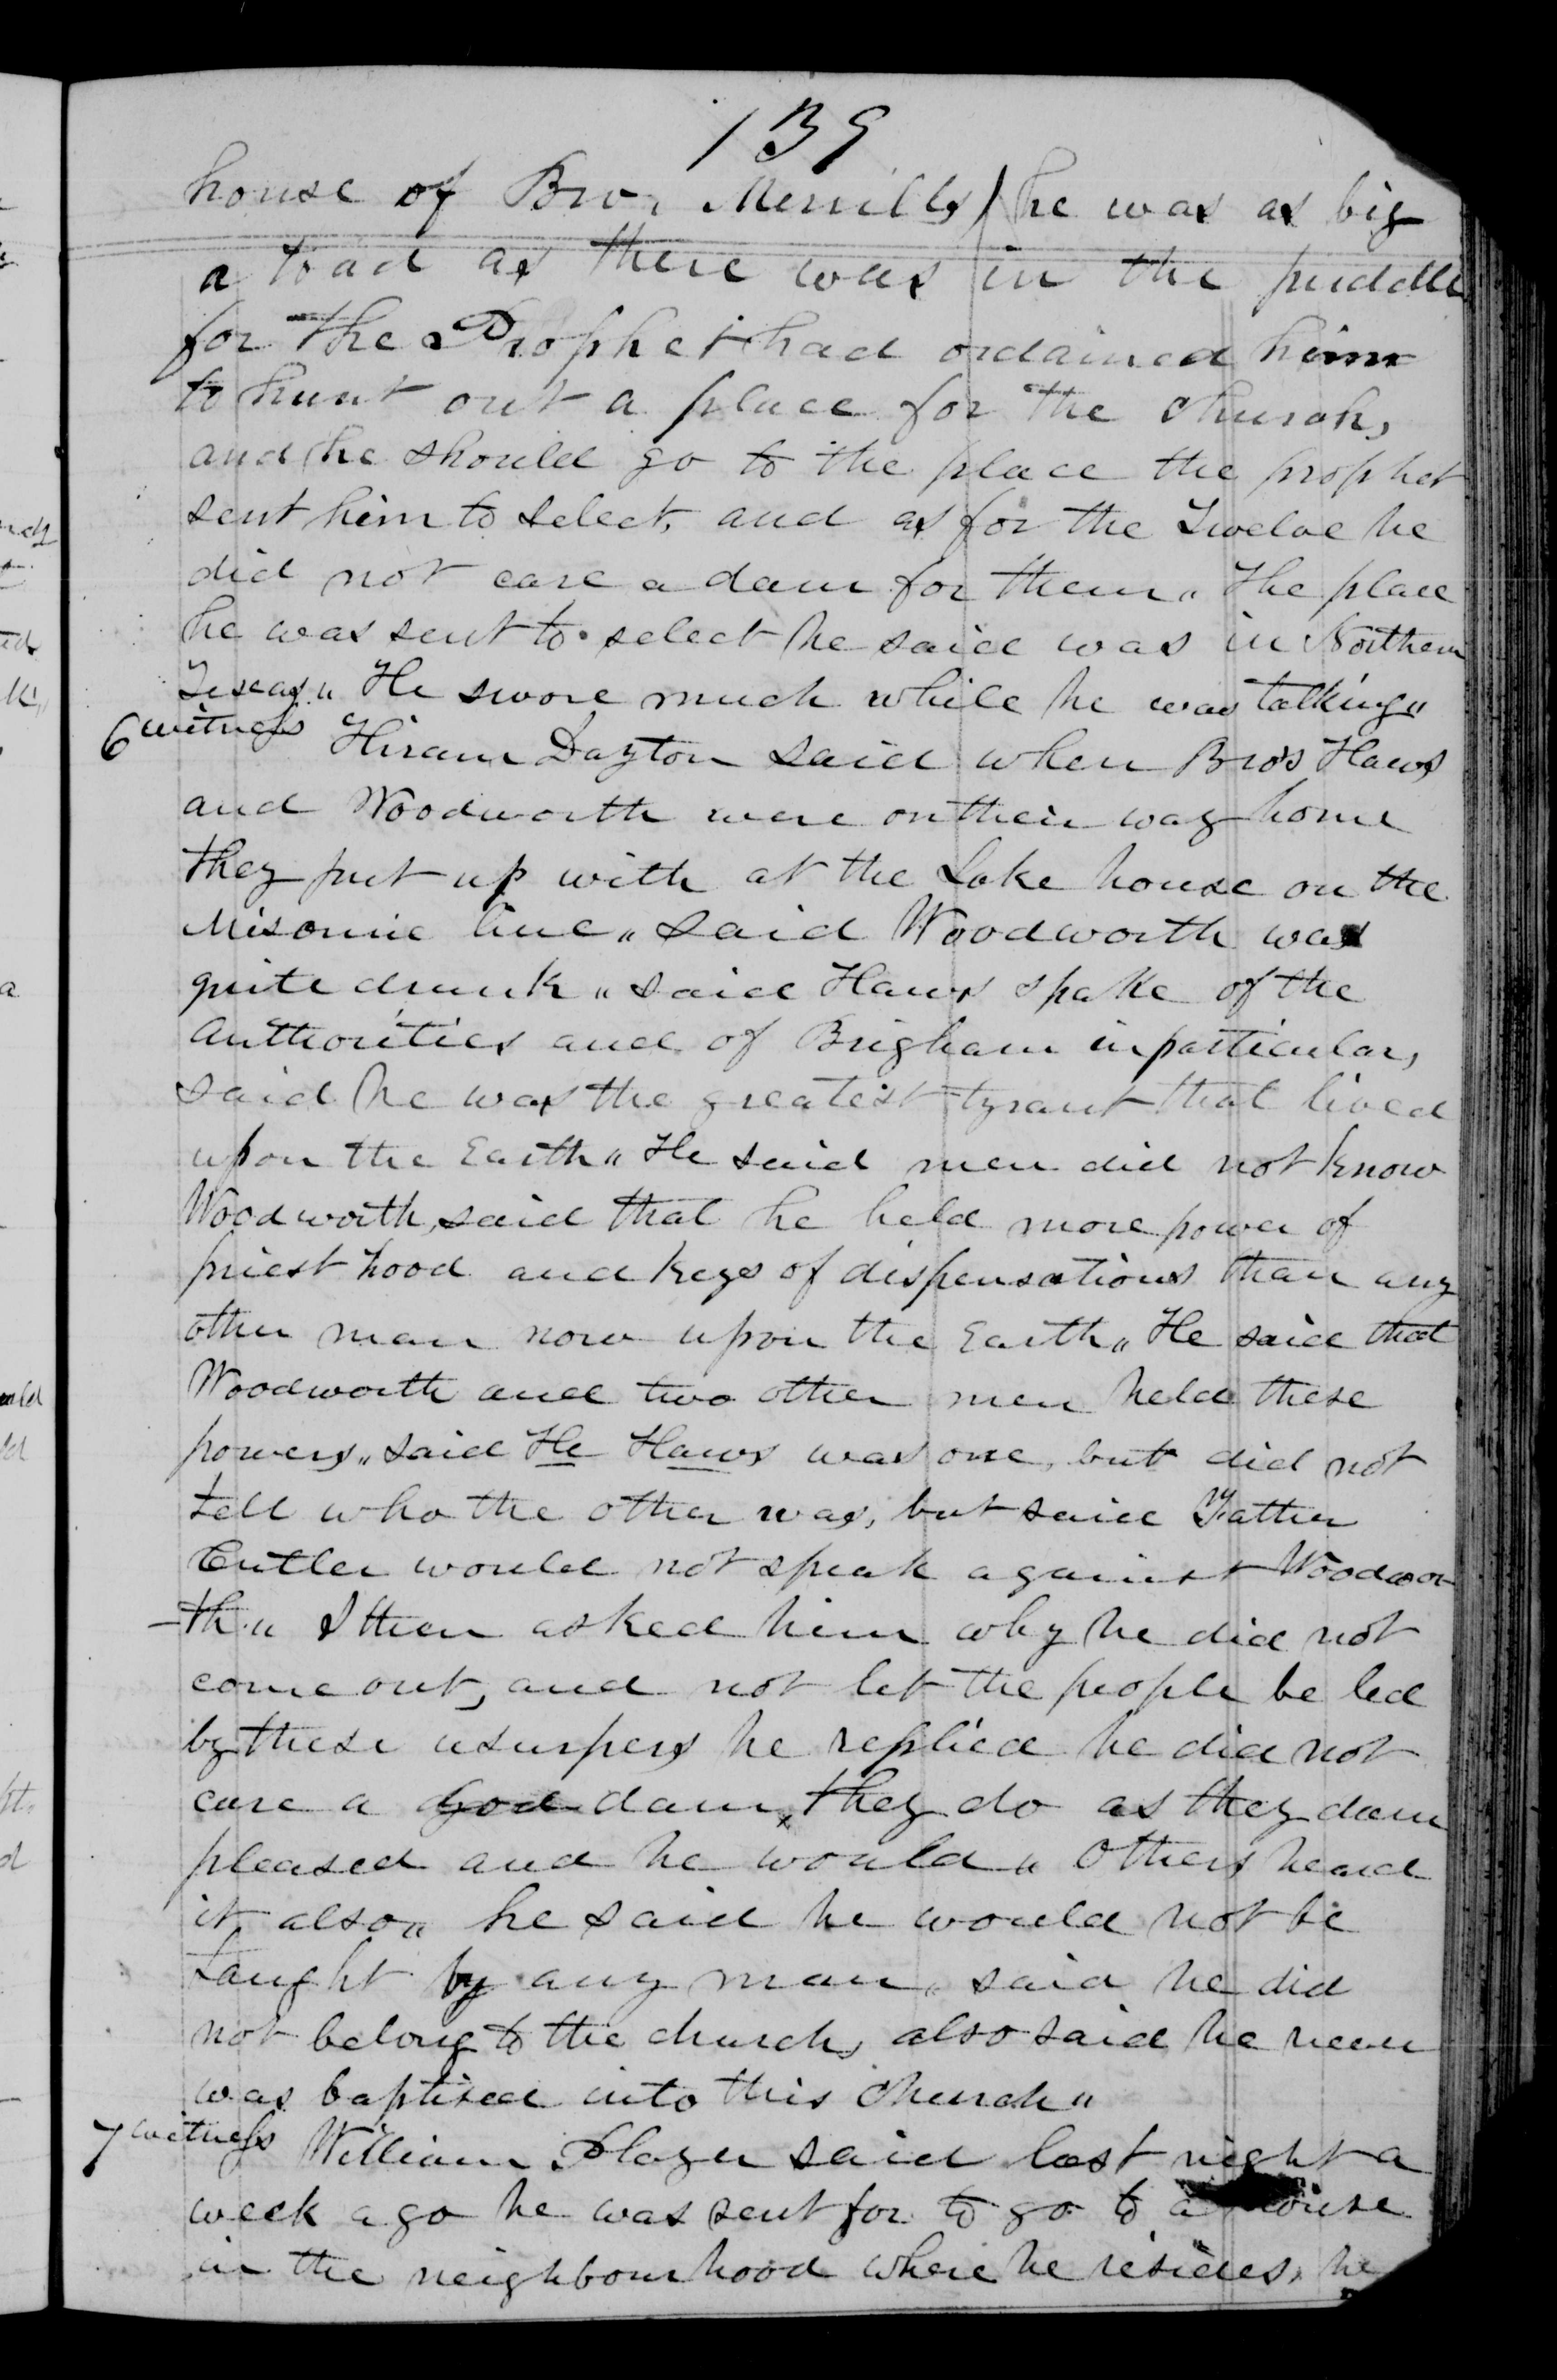 139
house of Bro. Merrills) he was as big
a toad as there was in the puddle
for the Prophet had ordained him
to hunt out a place for the church,
and he should go to the place the prophet
sent him to select, and as for the Twelve he
did not care a dam for them. The place
he was sent to select he said was in Northern
Texas" He swore much while he was talking"
6 witness Hiram Dayton said when Bro's Haws
and Woodworth were on their way home
they put up with at the Lake house on the
Misourie line" said Woodworth was
quite drunk" said Haws spake of the
authorities and of Brigham in particular,
said he was the greatest tyrant that lived
upon the Earth" He said men did not know
Woodworth, said that he held more power of
priest hood and keys of dispensations than any
other man now upon the Earth" He said that
Woodworth and two other men held these
powers" said He Haws was one, but did not
tell who the other was, but said Father
Cutler would not speak against Woodwor
-th" I then asked him why he did not
come out, and not let the people be led
by these usurpers he replied he did not
care a God dam, they do as they dam
pleased and he would" Others heard
it, also" he said he would not be
taught by any man, said he did
not belong to the church, also said he never
was baptised into this church"
7 witness William said last night a
week ago he was sent for to go to a house
in the neighbourhood where he resides, he